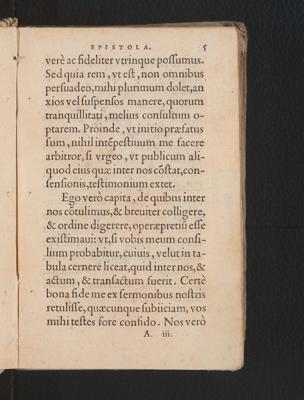 EPISTOLA. 5
verè ac fideliter vtrinque possumus.
Sed quia rem, vt est, non omnibus
persuadeo, mihi plurimum dolet, an
xios vel suspensos manere, quorum
tranquillitati, melius consultum o-
ptarem. Proinde, vt initio præfatus
sum, nihil intẽpestiuum me facere
arbitror, si vrgeo, vt publicum ali-
quod eius quæ inter nos cõstat, con-
sensionis, testimonium extet.
Ego verò capita, de quibus inter
nos cõtulimus, & breuiter colligere,
& ordine digerere, operæpretiũ esse
existimaui: vt, si vobis meum consi-
lium probabitur, cuiuis, velut in ta-
bula cernere liceat, quid inter nos, &
actum, & transactum fuerit. Certè
bona fide me ex sermonibus nostris
retulisse, quæcunque subiiciam, vos
mihi testes fore confido. Nos verò
A. iii.